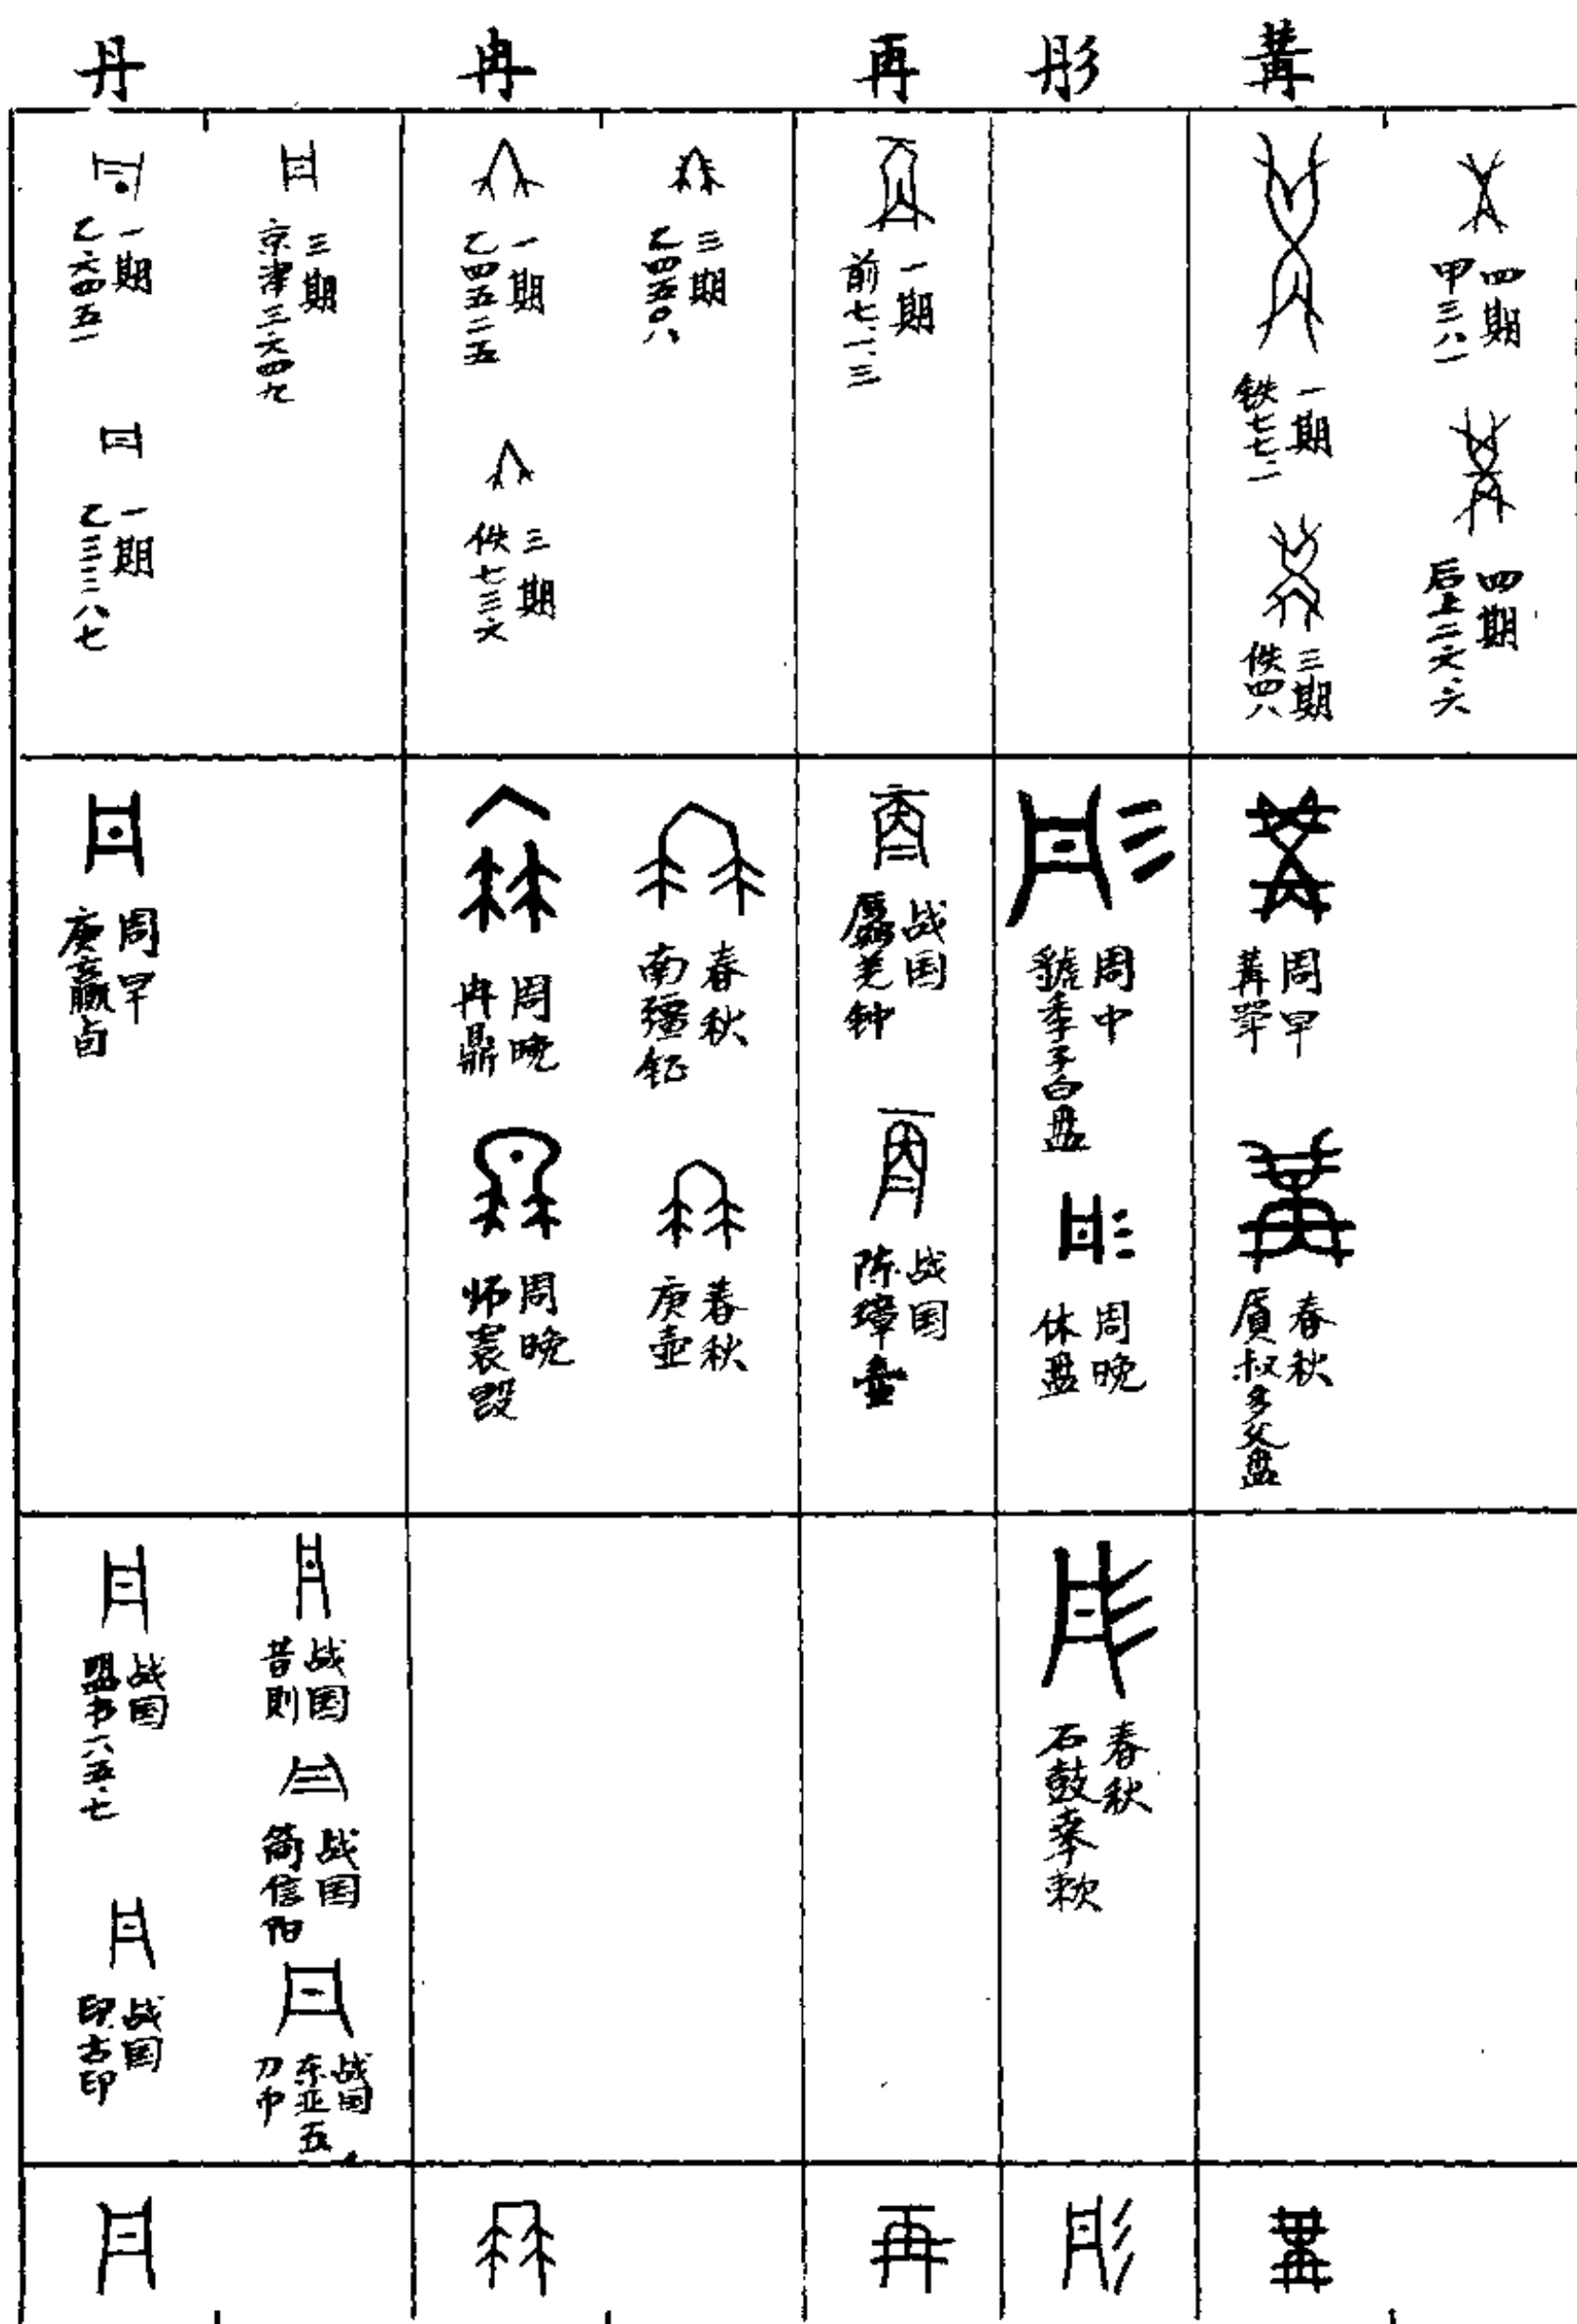 丹 冉 再 彤 冓
一期
乙六四五一
三期
京津三六四九
一期
乙三三八七
一期
乙四五二五
三期
乙四五〇八
三期
佚七三六
一期
前七·一·三
一期
铁七七·二
四期
甲三八一
三期
佚四八
四期
后上二六·六
周早
庚嬴卣
周晚
冉鼎
春秋
南疆钲
周晚
师寰𣪘
春秋
庚壶
战国
𠫑羌钟
战国
陈璋壶
周中
虢季子白盘
周晚
休盘
周早
冓斝
春秋
叔多父盘
战国
盟书一八五·七
战国
昔则
战国
简信阳
战国
印古印
战国
东亚五
刀币
春秋
石鼓